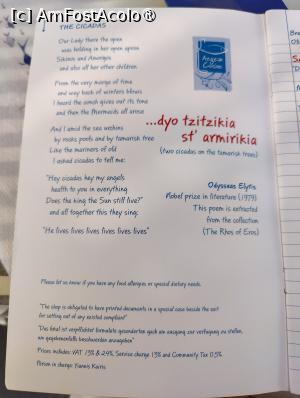 [c] AmFostAcolo®
THE CICADAS
Our Lady there the open
sea holding in her open apron
Sikinos and Amorgos
and also all her other children
From the very marge of time
and way back of winters blows
I heard the conch gives out its tone
and then the Mermaids all arose
And I amid the sea urchins
by rocks pools and by tamarisk tree
Like the mariners of old
I asked cicadas to tell me:
"Hey cicadas hey my angels
health to you in everything
Does the king the Sun still live?"
and all together this they sing:
"He lives lives lives lives lives lives"
...dyo tzitzikia
st' armirikia
(two cicadas on the tamarisk trees)
Odysseas Elytis
Nobel prize in literature (1979)
This poem is extracted
from the collection
(The Rhos of Eros)
Please let us know if you have any food allergies or special dietary needs.
"The shop is obligated to have printed documents in a special case beside the exit
for setting out of any existed complaint"
"Das lokal ist verpflichtet formulare gesondertan gach am ausgang zur verfugung zu stellen,
um gegebenenfalls beschwerden anzugeben"
Prices includes: VAT 13% & 24%, Service charge 13% and Community Tax 0.5%
Person in charge: Yiannis Karris